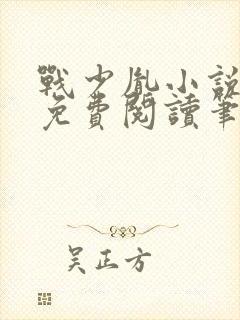 戰少胤小說
免費閱讀筆
吴正方